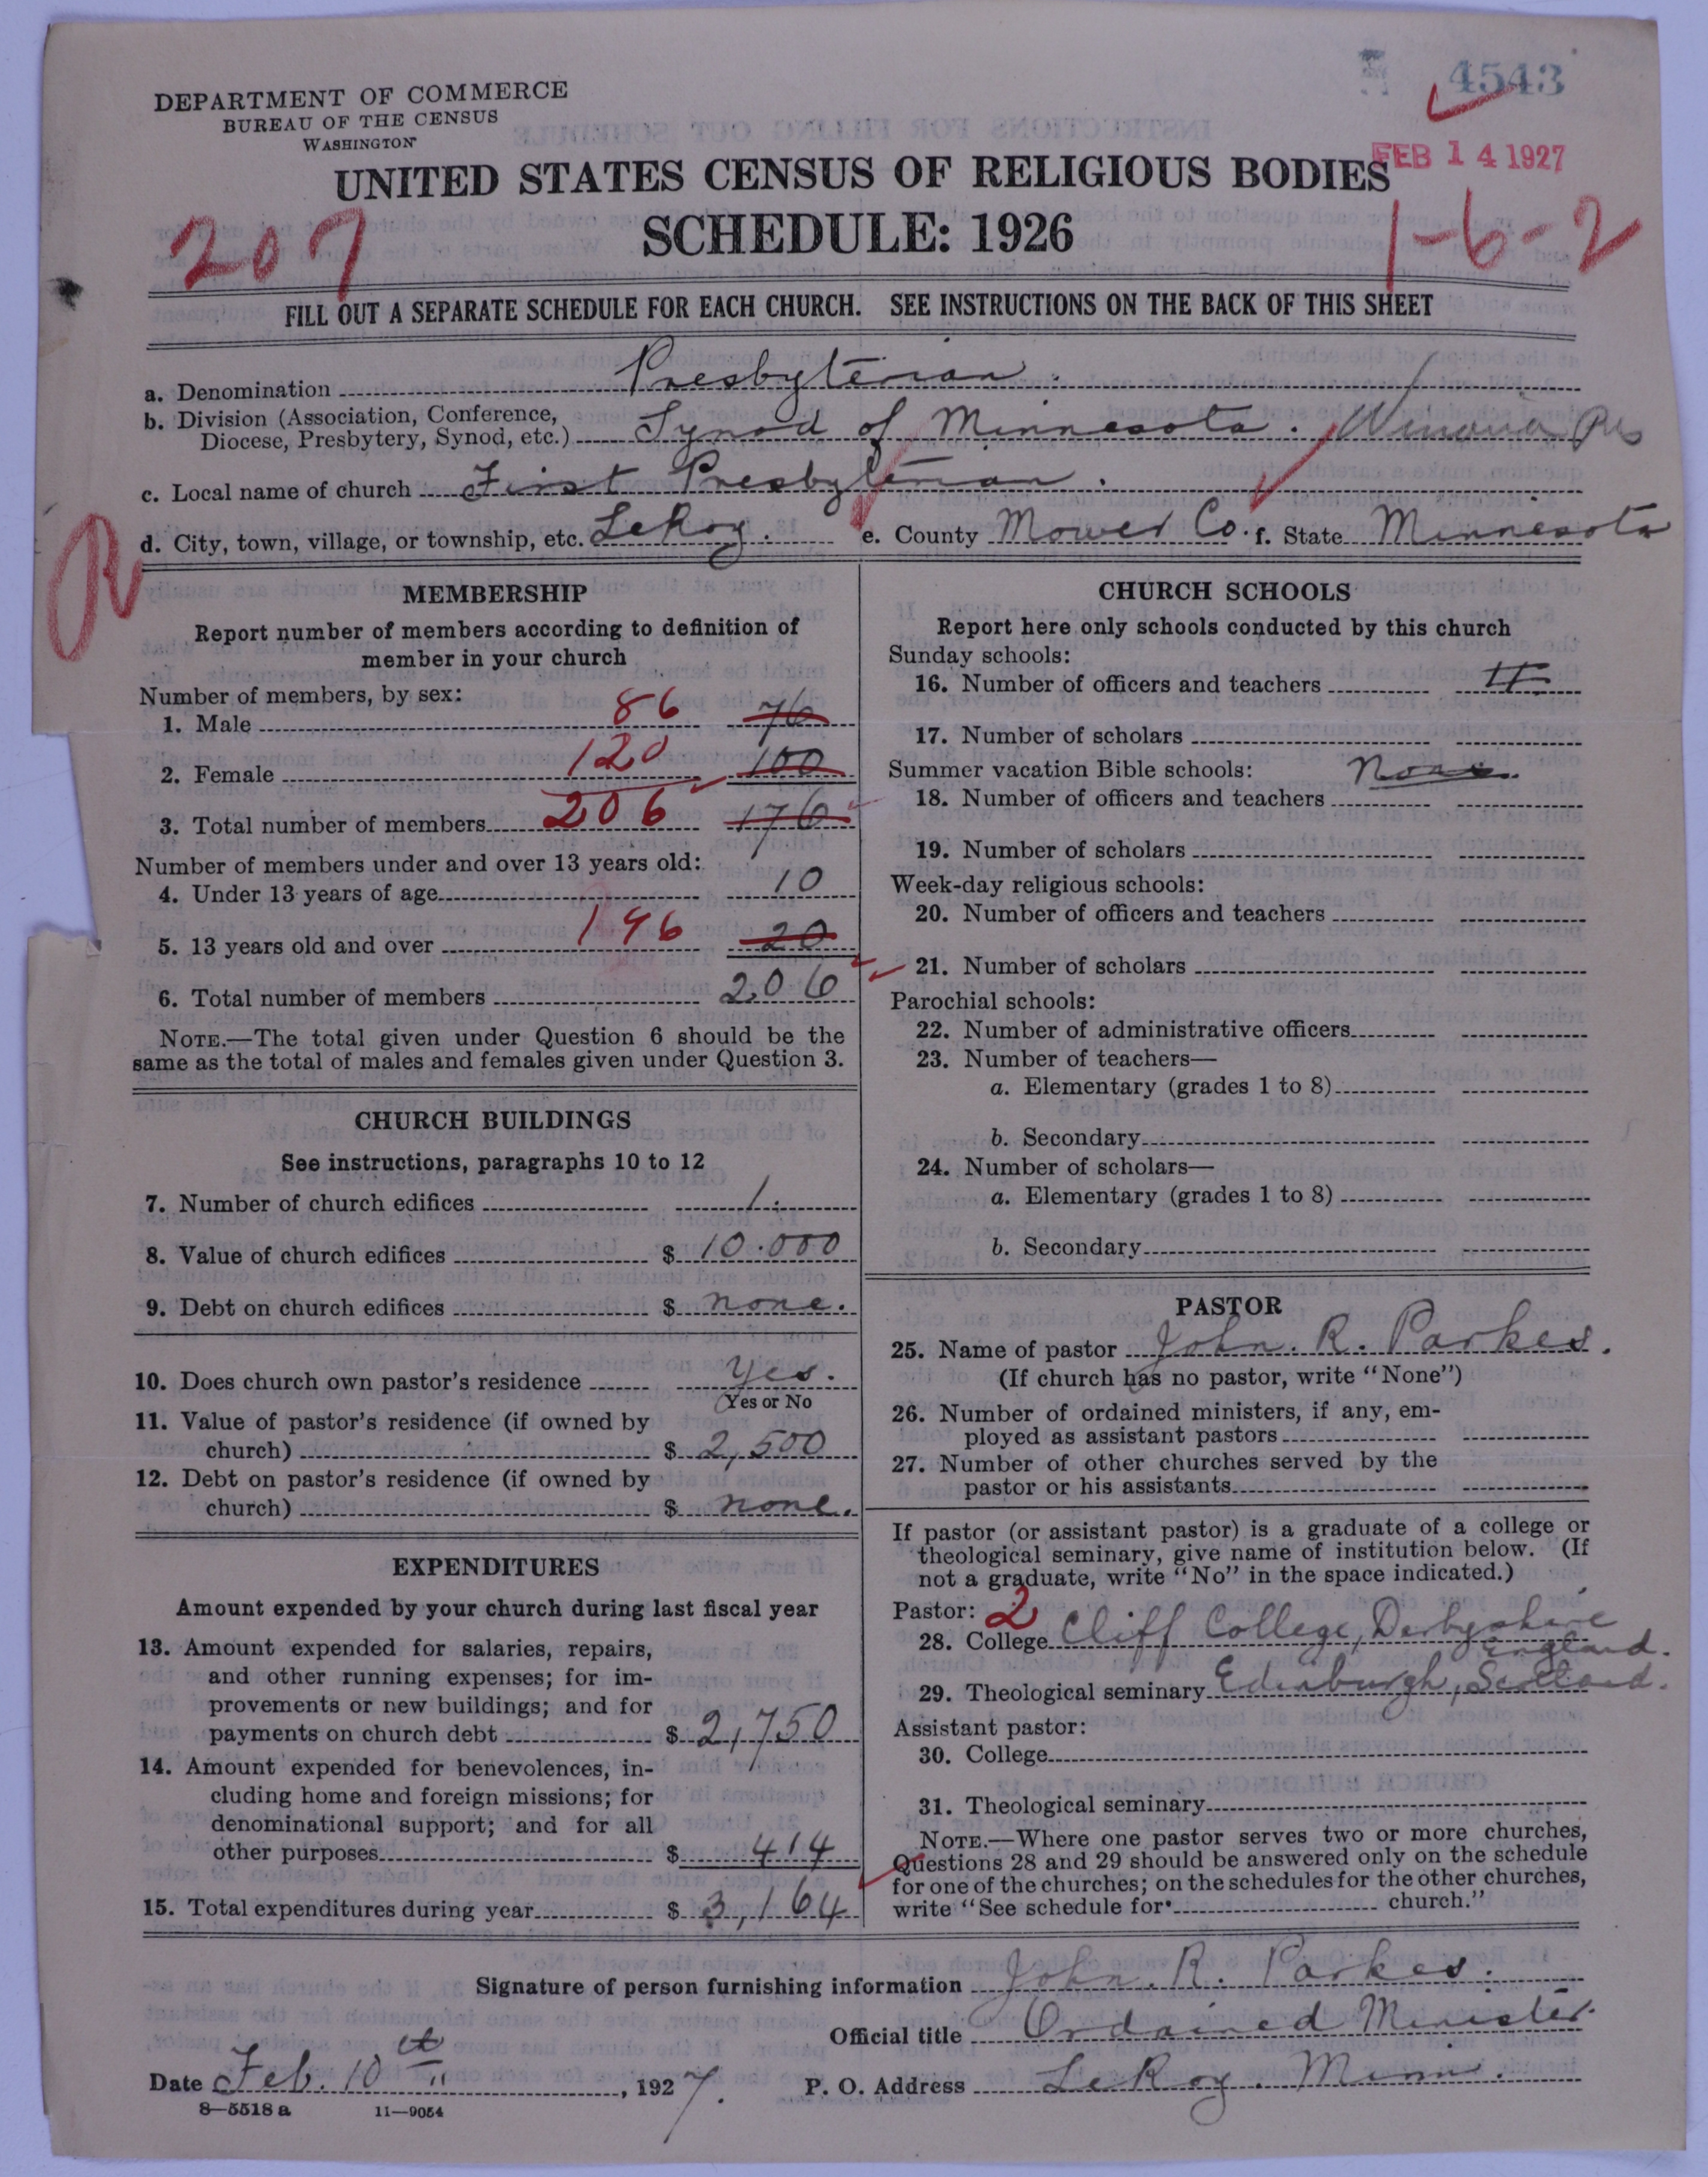 4543
DEPARTMENT OF COMMERCE
BUREAU OF THE CENSUS
WASHINGTON
FEB 14 1927
UNITED STATES CENSUS OF RELIGIOUS BODIES
SCHEDULE: 1926
207
1-6-2
FILL OUT A SEPARATE SCHEDULE FOR EACH CHURCH. SEE INSTRUCTIONS ON THE BACK OF THIS SHEET
a. Denomination Presbyterian.
b. Division (Association, Conference,
Diocese, Presbytery, Synod, etc.) Synod of Minnesota. Winona Pres
c. Local name of church First Presbyterian.
d. City, town, village, or township, etc. LeRoy. e. County Mower Co. f. State Minnesota
MEMBERSHIP
Report number of members according to definition of
member in your church
Number of members, by sex:
1. Male 86 76
2. Female 120 100
3. Total number of members 206 176
Number of members under and over 13 years old:
4. Under 13 years of age 10
5. 13 years old and over 196 20
6. Total number of members 206
NOTE.—The total given under Question 6 should be the
same as the total of males and females given under Question 3.
CHURCH BUILDINGS
See instructions, paragraphs 10 to 12
7. Number of church edifices 1.
8. Value of church edifices $ 10.000
9. Debt on church edifices $ none.
10. Does church own pastor's residence yes.
Yes or No
11. Value of pastor's residence (if owned by
church) $ 2,500
12. Debt on pastor's residence (if owned by
church) $ none.
EXPENDITURES
Amount expended by your church during last fiscal year
13. Amount expended for salaries, repairs,
and other running expenses; for im-
provements or new buildings; and for
payments on church debt $ 2,750
14. Amount expended for benevolences, in-
cluding home and foreign missions; for
denominational support; and for all
other purposes $ 414
15. Total expenditures during year $ 3,164
CHURCH SCHOOLS
Report here only schools conducted by this church
Sunday schools:
16. Number of officers and teachers
17. Number of scholars
Summer vacation Bible schools: None.
18. Number of officers and teachers
19. Number of scholars
Week-day religious schools:
20. Number of officers and teachers
21. Number of scholars
Parochial schools:
22. Number of administrative officers
23. Number of teachers—
a. Elementary (grades 1 to 8)
b. Secondary
24. Number of scholars—
a. Elementary (grades 1 to 8)
b. Secondary
PASTOR
25. Name of pastor John. R. Parkes.
(If church has no pastor, write "None")
26. Number of ordained ministers, if any, em-
ployed as assistant pastors
27. Number of other churches served by the
pastor or his assistants
If pastor (or assistant pastor) is a graduate of a college or
theological seminary, give name of institution below. (If
not a graduate, write "No" in the space indicated.)
Pastor: 2
28. College Cliff College, Derbyshire
England.
29. Theological seminary Edinburgh, Scotland.
Assistant pastor:
30. College
31. Theological seminary
NOTE.—Where one pastor serves two or more churches,
Questions 28 and 29 should be answered only on the schedule
for one of the churches; on the schedules for the other churches,
write "See schedule for church."
Signature of person furnishing information John. R. Parkes.
Official title Ordained Minister.
Date Feb. 10th, 1927. P. O. Address LeRoy. Minn.
8—5518 a 11—9054